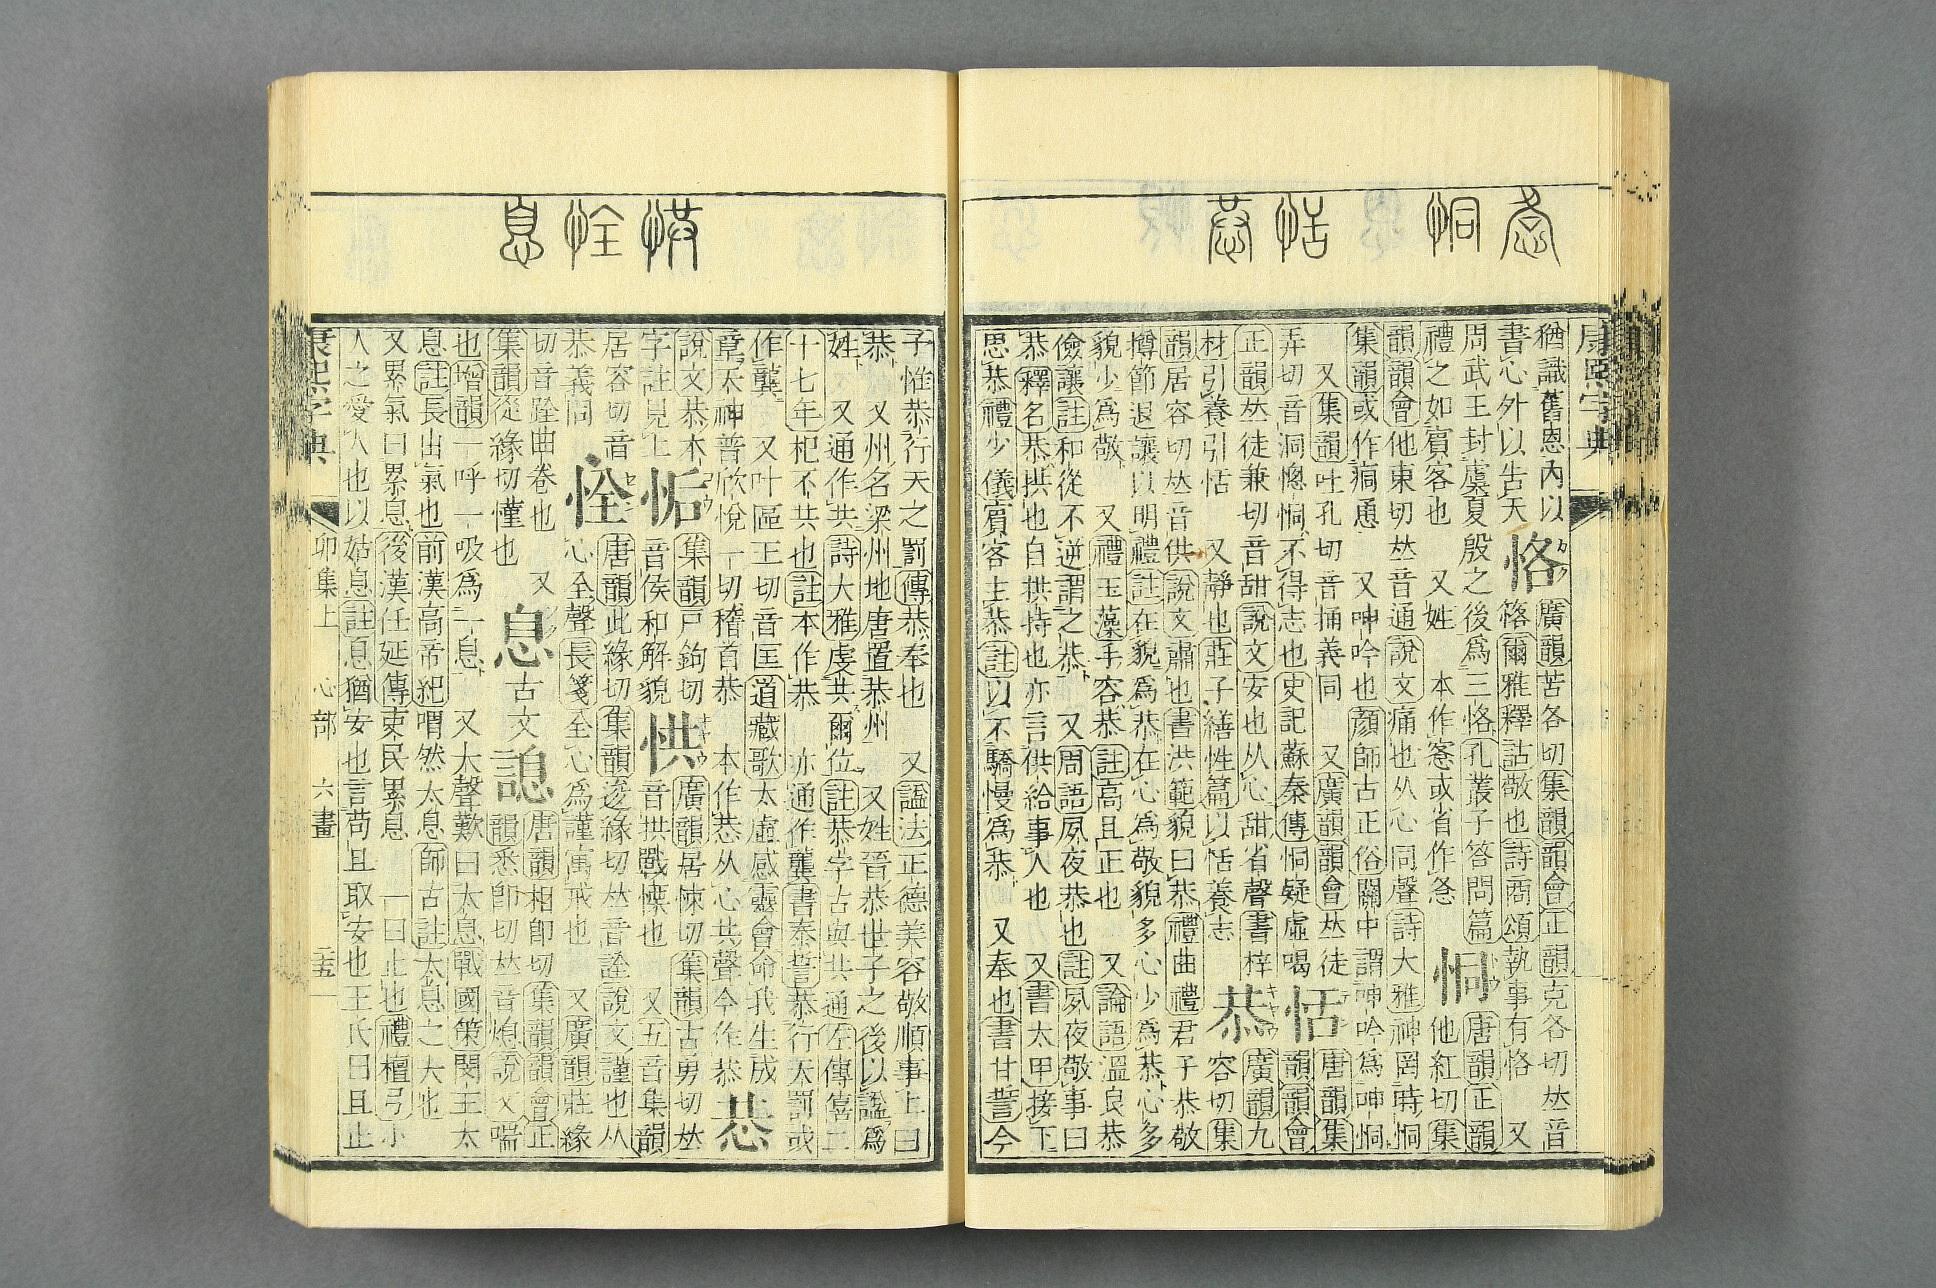 康熙字典
猶識舊恩內以
書心外以告天
恪
廣韻苦各切集韻韻會正韻克各切𠀤音
恪爾雅釋詁敬也詩商頌執事有恪 又
周武王封虞夏殷之後爲三恪孔叢子答問篇
禮之如賓客也 又姓 本作愙或省作㤩
恫
唐韻正韻
他紅切集
韻韻會他東切𠀤音通說文痛也从心同聲詩大雅神罔時恫
集韻或作痌𢝊 又呻吟也顏師古正俗關中謂呻吟爲呻恫
又集韻吐孔切音捅義同 又廣韻韻會𠀤徒
弄切音洞愡恫不得志也史記蘇秦傳恫疑虛喝
恬
唐韻集
韻韻會
正韻𠀤徒兼切音甜說文安也从心甜省聲書梓
材引養引恬 又靜也莊子繕性篇以恬養志
恭
廣韻九
容切集
韻居容切𠀤音供說文肅也書洪範貌曰恭禮曲禮君子恭敬
撙節退讓以明禮註在貌爲恭在心爲敬貌多心少爲恭心多
貌少爲敬 又禮玉藻手容恭註高且正也 又論語溫良恭
儉讓註和從不逆謂之恭 又周語夙夜恭也註夙夜敬事曰
恭釋名恭拱也自拱持也亦言供給事人也 又書太甲接下
思恭禮少儀賓客主恭註以不驕慢爲恭 又奉也書甘誓今
子惟恭行天之罰傳恭奉也 又諡法正德美容敬順事上曰
恭 又州名梁州地唐置恭州 又姓晉恭世子之後以諡爲
姓 又通作共詩大雅虔共爾位註恭字古與共通左傳僖二
十七年杞不共也註本作恭 亦通作龔書泰誓恭行天罰或
作龔 又叶區王切音匡道藏歌太虛感靈會命我生成
章天神普欣悅一切稽首恭 本作㳟从心共聲今作恭
㳟
說文恭本
字註見上
㤧
集韻戸鉤切
音侯和解貌
㤨
廣韻居悚切集韻古勇切𠀤
音拱戰慄也 又五音集韻
居容切音
恭義同
恮
唐韻此緣切集韻逡緣切𠀤音詮說文謹也从
心全聲長箋全心爲謹寓戒也 又廣韻莊緣
切音跧曲卷也 又
集韻從緣切懂也
息
古文
𢛳
唐韻相卽切集韻韻會正
韻悉卽切𠀤音熄說文喘
也增韻一呼一吸爲一息 又大聲歎曰太息戰國策閔王太
息註長出氣也前漢高帝紀喟然太息師古註太息之大也
又累氣曰累息後漢任延傳吏民累息 一曰止也禮檀弓小
人之愛人也以姑息註息猶安也言苟且取安也王氏曰且止
康熙字典
卯集上
心部
六畫